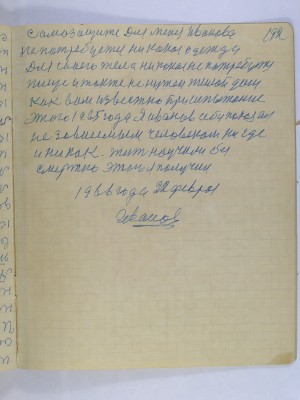 самозащите для меня Иванова 192
не потребуется никакой одежда
для своего тела никакой не потребуется
пище и также не нужен жилой дом
как вам известно при испытание
этого 1965 года я Иванов себя показал
не зависемым человеком нигде
и никак. жит научили бы
смертно этого я получил
1966 года 22 феврал
Иванов